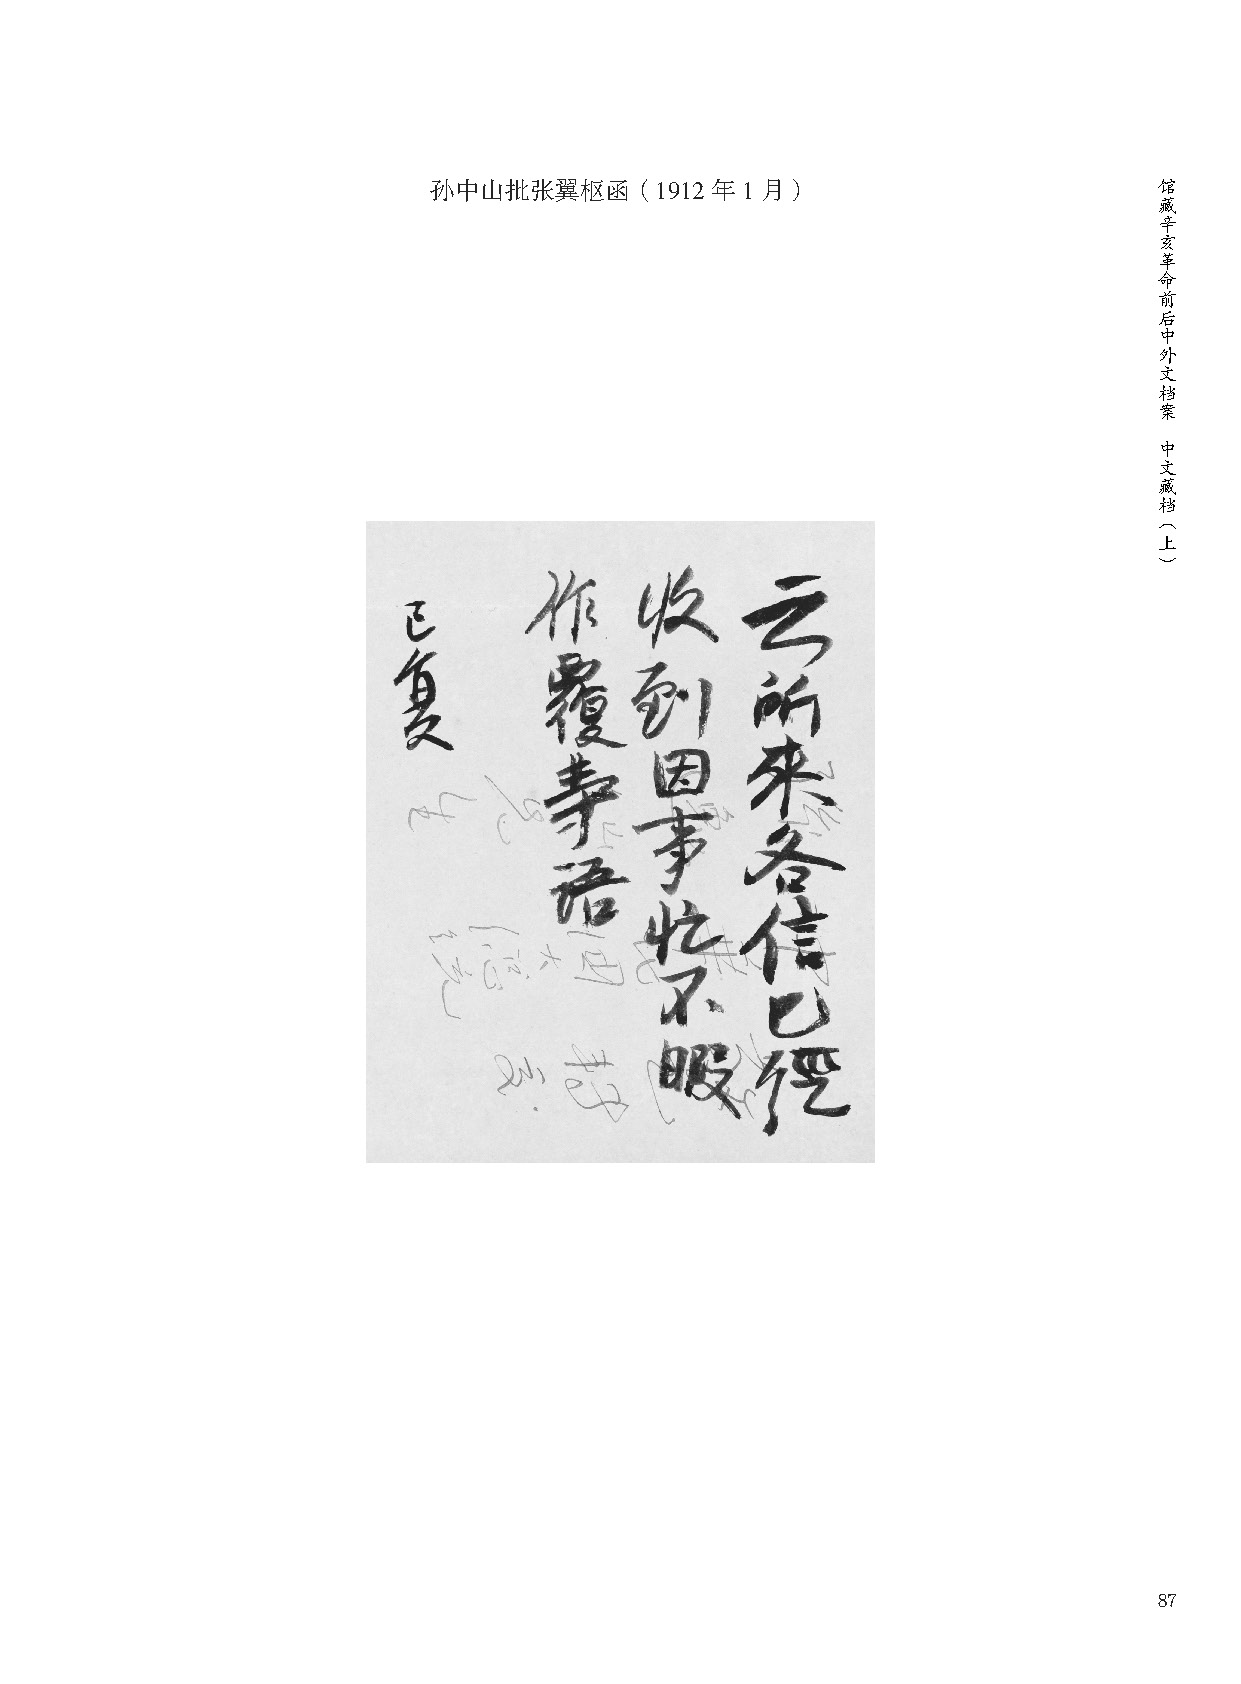 孙中山批张翼枢函（1912 年 1 月）
馆藏辛亥革命前后中外文档案　中文藏档（上）
云所來各信已經
收到因事忙不暇
作覆等語
已复
87